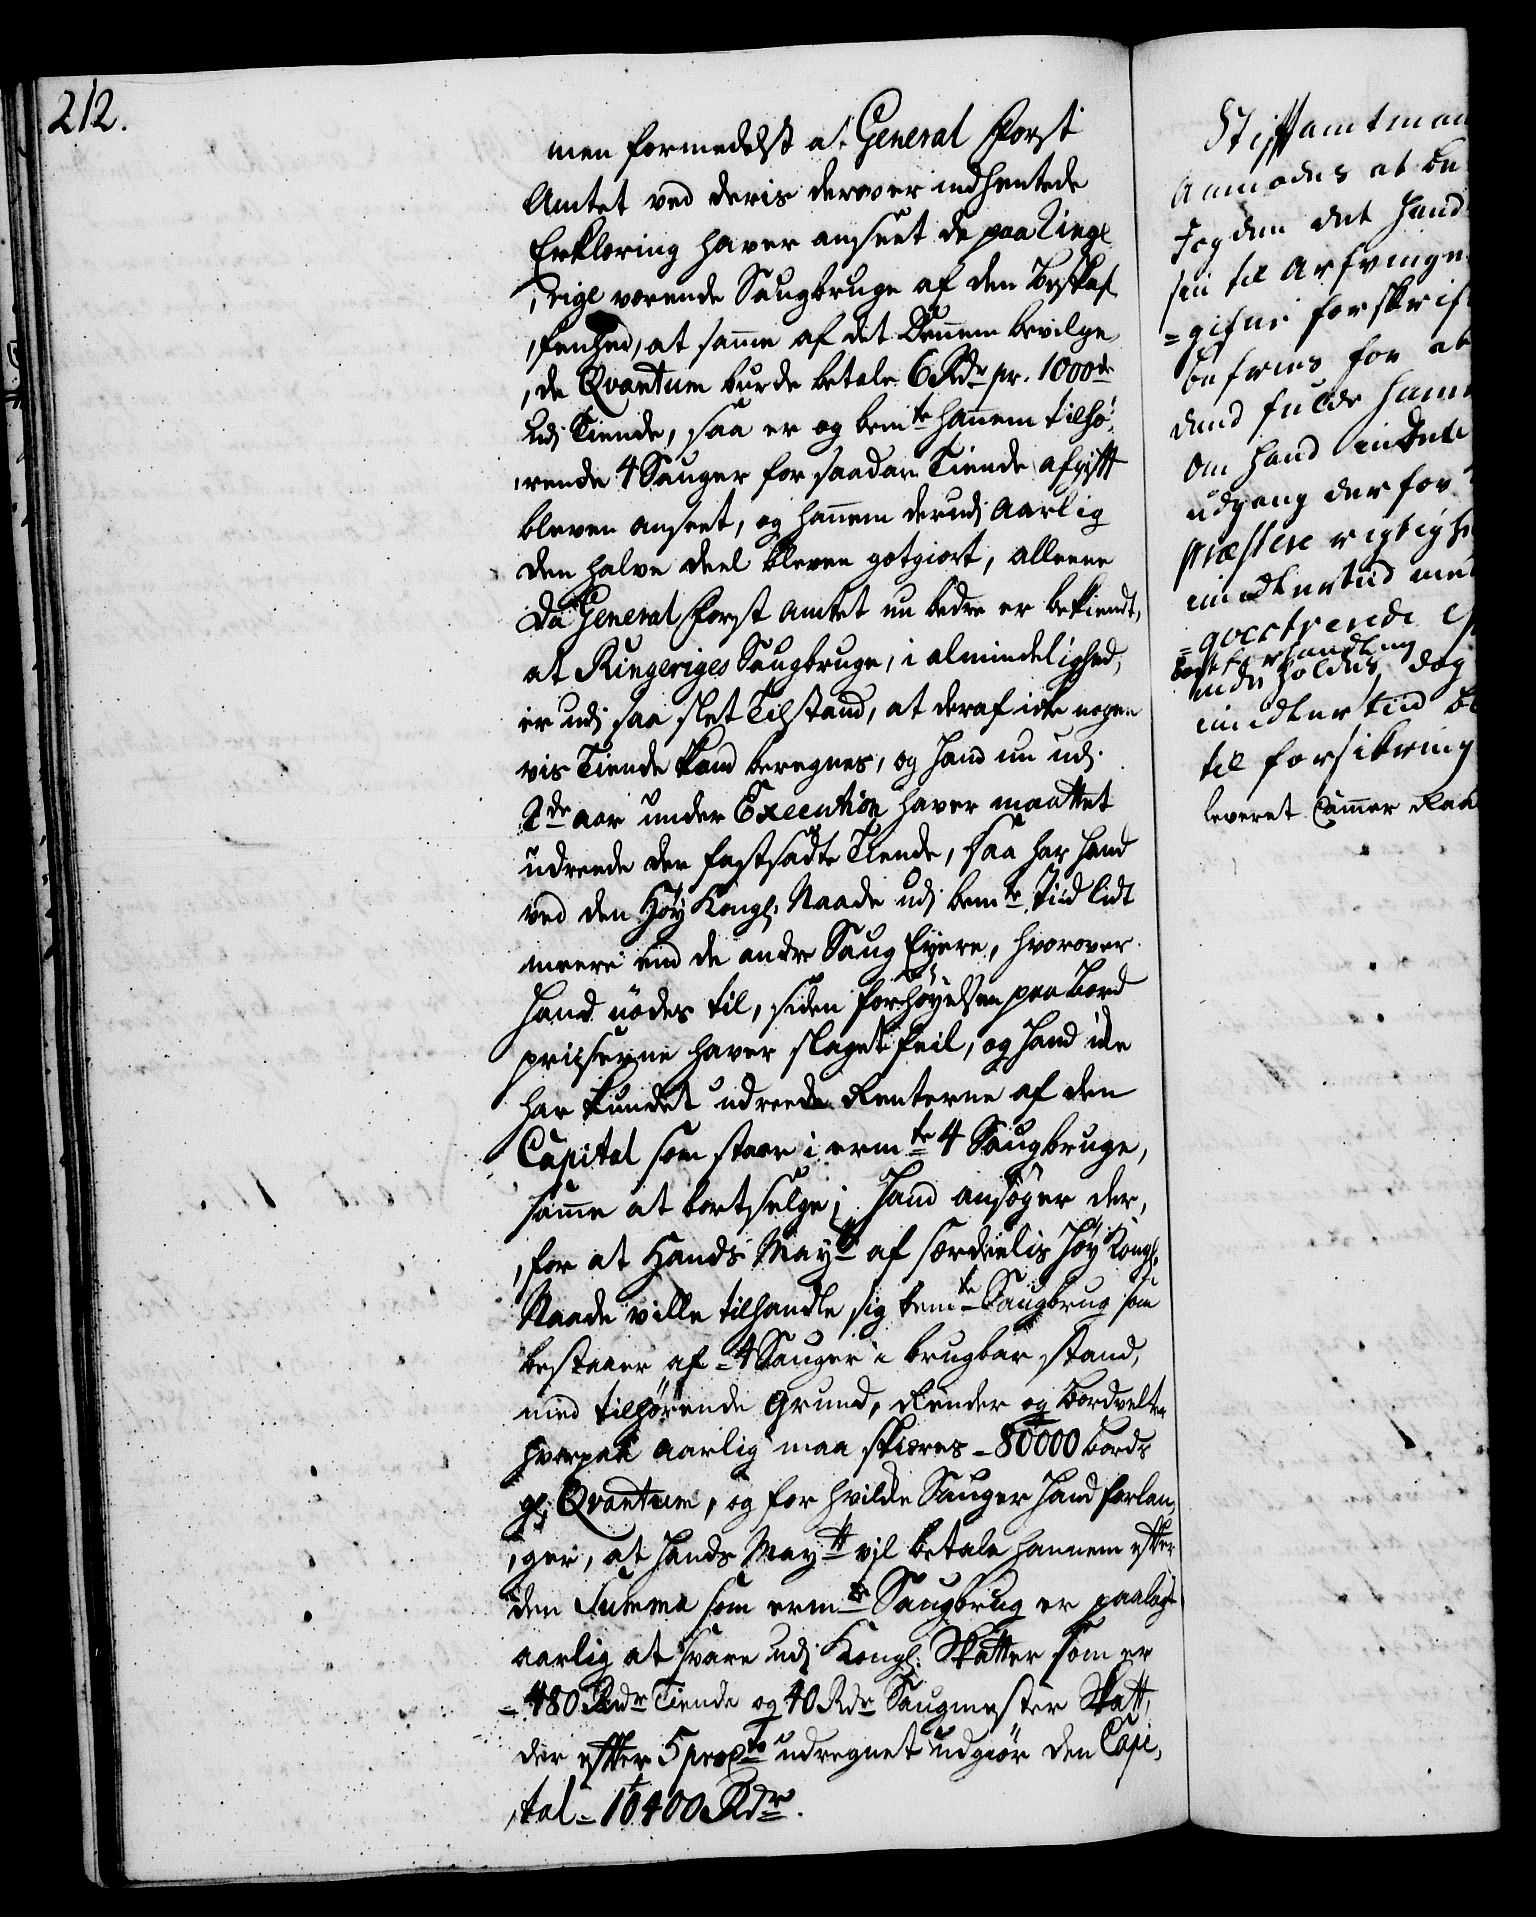 212.
men formedelst at General Forst
Amtet ved deris derover indhentede
Erklæring haver anseet de paa Ringe,
,rige værende Saugbruge af den beskaf,
,fenhed, at samme af det dennem bevilge,
,de Qvantum burde betale 6 Rdr pr. 1000de
udj Tiende, saa er og bemte hannem tilhø,
,rende 4 Sauger for saadan Tiende afgift
bleven anseet, og hannem derudj aarlig
den halve deel bleven gotgiort, alleene
da General Forst Amtet nu bedre er bekiendt,
at Ringeriges Saugbruge, i almindelighed,
er udj saa slet Tilstand, at deraf icke nogen
vis Tiende kand beregnes, og hand nu udj
2de aar under Execution haver maattet
udreede den fastsadte Tiende, saa har hand
ved den Høy Kongl: Naade udj bemte tiid lidt
meere end de andre Saug Eyere, hvorover
hand nødes til, siden forhøyelsen paa bord
priiserne haver slaget feil, og hand icke
har kundet udreede Renterne af den
Capital som staar i ermte 4 Saugbruge,
samme at bortselge; Hand ansøger der,
,for at Hands Maytt af særdeelis Høy Kongl:
Naade ville tilhandle sig bemte Saugbrug som
bestaaer af 4 Sauger i brugbar stand,
med tilhørende Grund, Render og Bordvelter
hvorpaa aarlig maa skiæres 80000 bords
gl: Qvantum, og for hvilke Sauger hand forlan,
,ger, at Hands Maytt vil betale hannem efter
den Summa som ermte Saugbrug er paalagt
aarlig at svare udj Kongl: Skatter som er
480 Rdr Tiende og 40 Rdr Saugmester Skatt,
der efter 5 procto udregnet udgiør den Capi,
,tal 10400 Rdr.
Stiftamtman
Anmodes at be
Fogden det hand
sin til Arfvinge
=gifne forskrif
befries for at
dend fulde
om hand
udgang derfor
præstere rigtigh
imidlertiid med

forhandling
holdes, dog
imidlertiid
til forsikring
leveret Cammer Raa